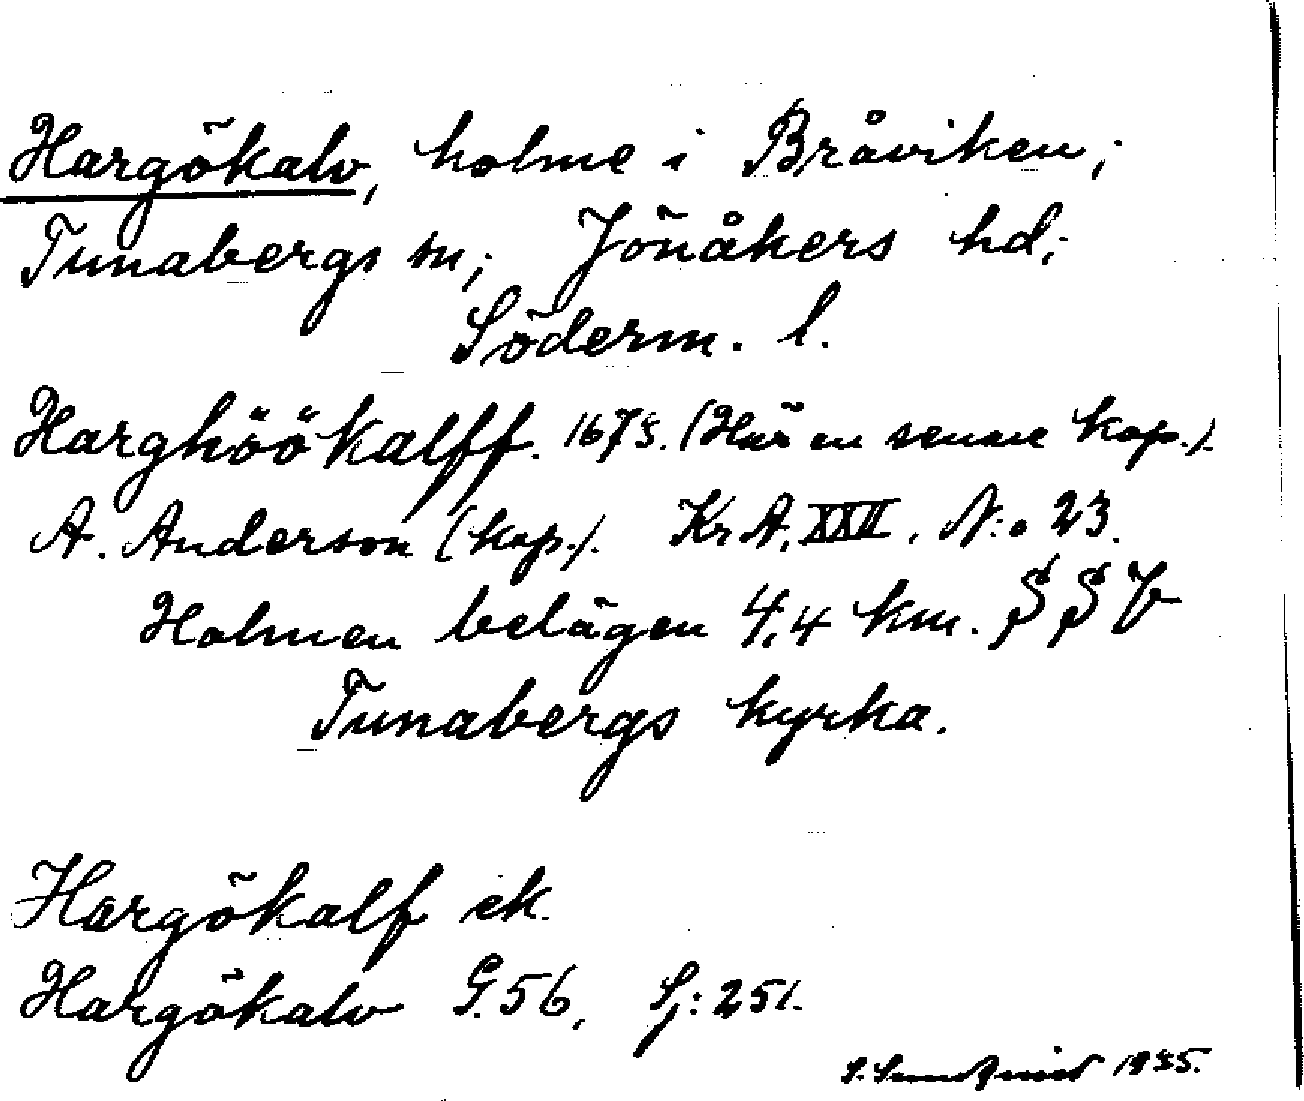 Hargökalv, holme i Bråviken;
Tunabergs sn; Jönåkers hd;
Söderm. l.
Harghöökalff. 1675. (Här en senare kop.).
A. Anderson (kop.). Kr A, XXII, N:o 23.
Holmen belägen 4,4 km. SSV
Tunabergs kyrka.
Hargökalf ek.
Hargökalv G. 56, Sj: 251.
1935.